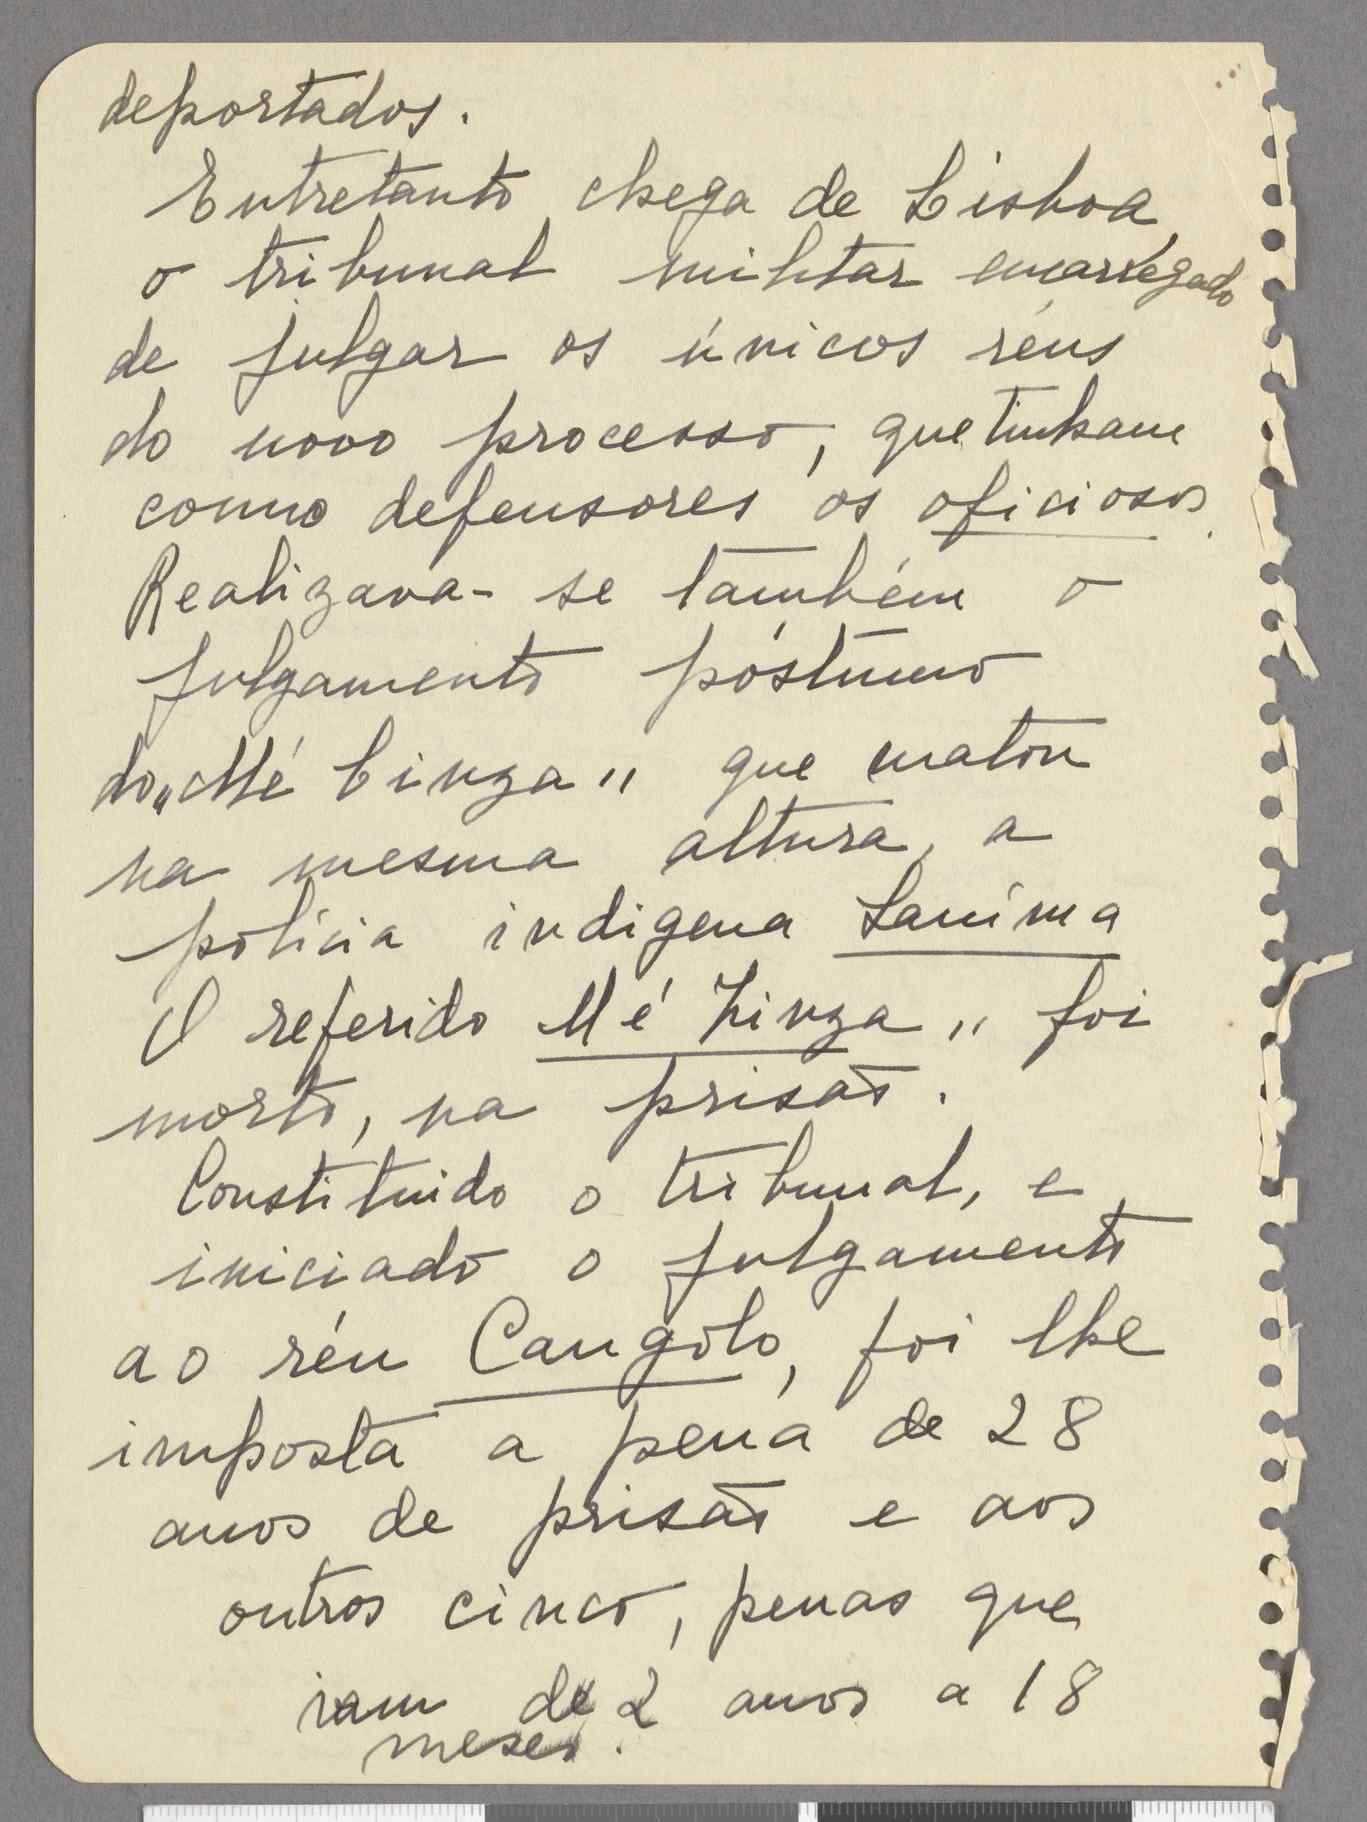 deportados.
Entretanto chega de Lisboa,
o tribunal militar encarregado
de julgar os únicos réus
do novo processo, que tinham
como defensores os oficiosos.
Realizava-se também o
julgamento póstumo
do "Mé Cinza" que matou
na mesma altura, a
polícia indigena
O referido Mé Zinza" foi
morto, na prisão.
Constituido o tribunal, e
iniciado o julgamento
ao réu Cangolo, foi lhe
imposta a pena de 28
anos de prisão e aos
outros cinco, penas que
iam de 2 anos a 18
meses.